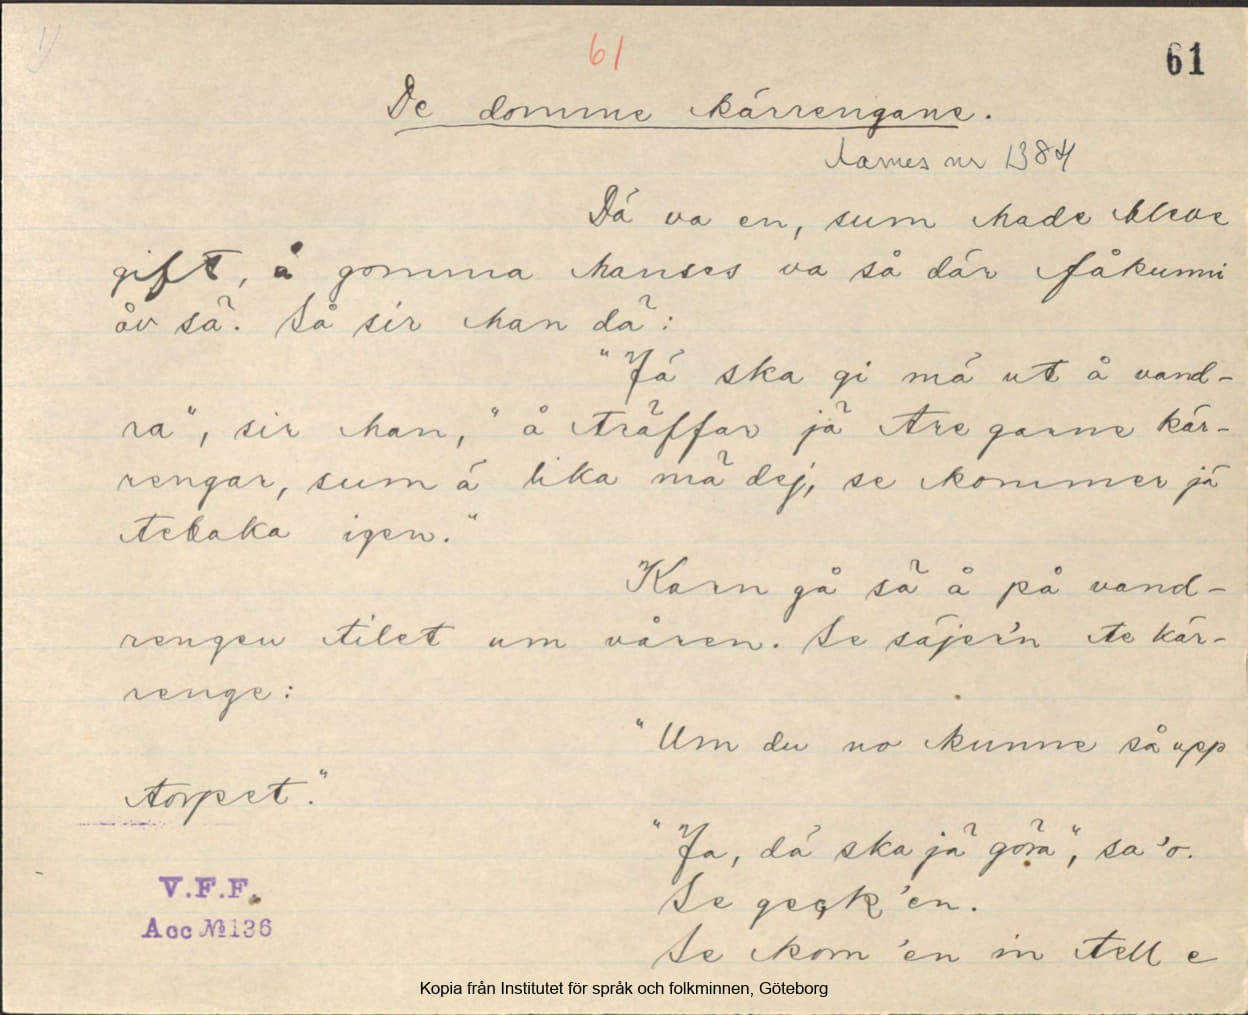 1)
61
61
De domme kärrengane.
Aarnes nr 1384
Dä va en, sum hade bleve
gift, å gomma hanses va så där fåkunni
åv sä. Så sir han då:
"Jä ska gi mä ut å vand-
ra", sir han, "å träffar jä tre garne kär-
rengar, sum ä lika mä dej, se kommer jä
tebaka igen."
Karn gå sä å på vand-
rengen tilet um våren. Se säjer'n te kär-
renge:
"Um du no kunne så upp
torpet."
"Ja, dä ska jä göra", sa'o.
Se geck'en.
Se kom 'en in tell e
V.F.F.
Acc №136
Kopia från Institutet för språk och folkminnen, Göteborg